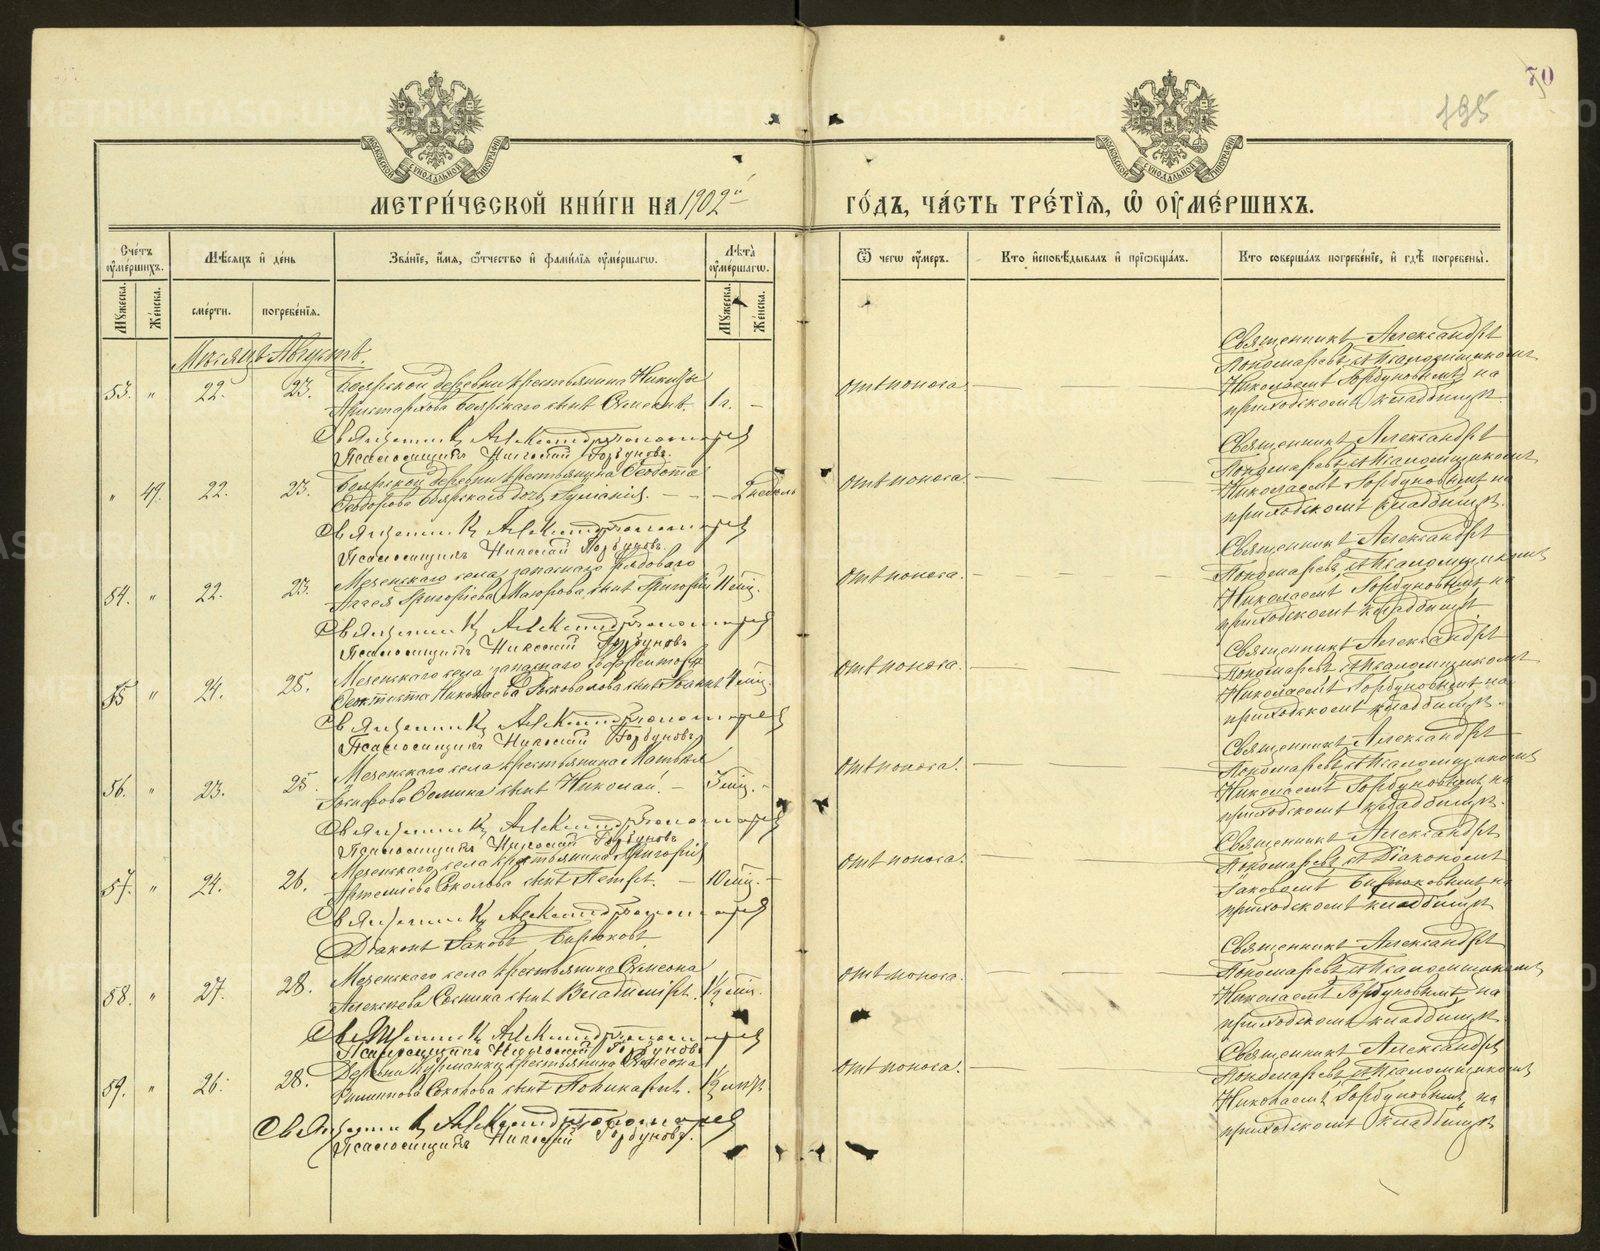 70
195
МЕТРИ́ЧЕСКОЙ КНИ́ГИ НА 1902й
ГО́ДЪ, ЧА́СТЬ ТРЕ́ТІЯ, Ѡ ОУМЕ́РШИХЪ.
Сче́тъ оумершихъ.
Мꙋжеска.
Же́нска.
Мѣ́сяцъ и де́нь
сме́рти.
погребе́нія.
Зва́ніе, и́мя, ѻ́тчество и фами́лія оуме́ршагѡ.
Лѣ́та оуме́ршагѡ.
Мꙋжеска.
Же́нска.
Ѿ чегѡ оу́меръ.
Кто и҆сповѣ́дывалъ и прїѡбща́лъ.
Кто соверша́лъ погребе́ніе, и гдѣ̀ погребены̀.
Мѣсяцъ Августъ.
53. " 22. 23. Боярской деревни крестьянина Никиты
Аристархова Боярскаго сынъ Симеонъ. 1 г. –
отъ поноса
Священникъ Александръ
Пономаревъ съ псаломщикомъ
Николаемъ Горбуновымъ на
приходскомъ кладбищѣ.
Священникъ Александръ Пономаревъ
Псаломщикъ Николай Горбуновъ.
" 49. 22. 23. Боярской деревни крестьянина Ѳедота
Ѳеодорова Боярскаго дочь – – 2 недѣль
отъ поноса.
Священникъ Александръ
Пономаревъ съ псаломщикомъ
Николаемъ Горбуновымъ на
приходскомъ кладбищѣ.
Священникъ Александръ Пономаревъ
Псаломщикъ Николай Горбуновъ.
54. " 22. 23. Мезенскаго села запаснаго рядоваго
Григоріева Маюрова сынъ Григорій 11 мѣц.
отъ поноса.
Священникъ Александръ
Пономаревъ съ псаломщикомъ
Николаемъ Горбуновымъ на
приходскомъ кладбищѣ
Священникъ Александръ Пономаревъ
Псаломщикъ Николай Горбуновъ
55 " 24. 25. Мезенскаго села запаснаго ефрейтора
Ѳеоктиста сынъ Іоаннъ мѣц.
отъ поноса.
Священникъ Александръ
Пономаревъ съ псаломщикомъ
Николаемъ Горбуновымъ на
приходскомъ кладбищѣ.
Священникъ Александръ Пономаревъ
Псаломщикъ Николай Горбуновъ
56. " 23. 25. Мезенскаго села крестьянина Матвѣя
Ѳомина сынъ Николай. – мѣц. –
отъ поноса.
Священникъ Александръ
Пономаревъ съ псаломщикомъ
Николаемъ Горбуновымъ на
приходскомъ кладбищѣ.
Священникъ Александръ Пономаревъ
Псаломщикъ Николай Горбуновъ
57. " 24. 26. Мезенскаго села крестьянина Григорія
Артеміева Соколова сынъ Петръ. – 10 мѣц. –
отъ поноса.
Священникъ Александръ
Пономаревъ съ Діакономъ
Іаковомъ Бирюковымъ на
приходскомъ кладбищѣ
Священникъ Александръ Пономаревъ
Діаконъ Іаковъ Бирюковъ
58. " 27. 28. Мезенскаго села крестьянина Симеона
Алексѣева сынъ Владиміръ. 1½ мѣц.
отъ поноса.
Священникъ Александръ
Пономаревъ съ псаломщикомъ
Николаемъ Горбуновымъ на
приходскомъ кладбищѣ
Священникъ Александръ Пономаревъ
Псаломщикъ Николай Горбуновъ
59. " 26. 28. Деревни Курманки крестьянина Симеона
Филиппова Соколова сынъ Поликарпъ.
отъ поноса.
Священникъ Александръ
Пономаревъ съ псаломщикомъ
Николаемъ Горбуновымъ на
приходскомъ кладбищѣ
Священникъ Александръ Пономаревъ
Псаломщикъ Николай Горбуновъ.